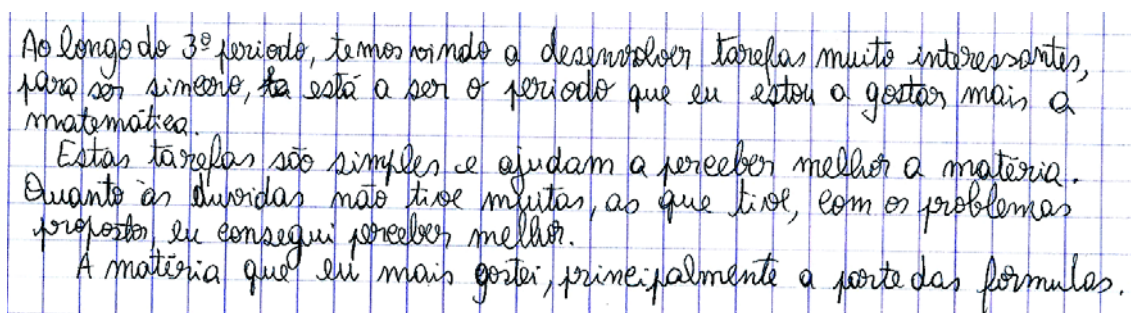 Ao longo do 3º periodo, temos vindo a desenvolver tarefas muito interessantes,
para ser sincero, está a ser o periodo que eu estou a gostar mais a
matemática.
Estas tarefas são simples e ajudam a perceber melhor a matéria.
Quanto às duvidas não tive muitas, as que tive, com os problemas
propostos, eu consegui perceber melhor.
A matéria que eu mais gostei, principalmente a parte das formulas.